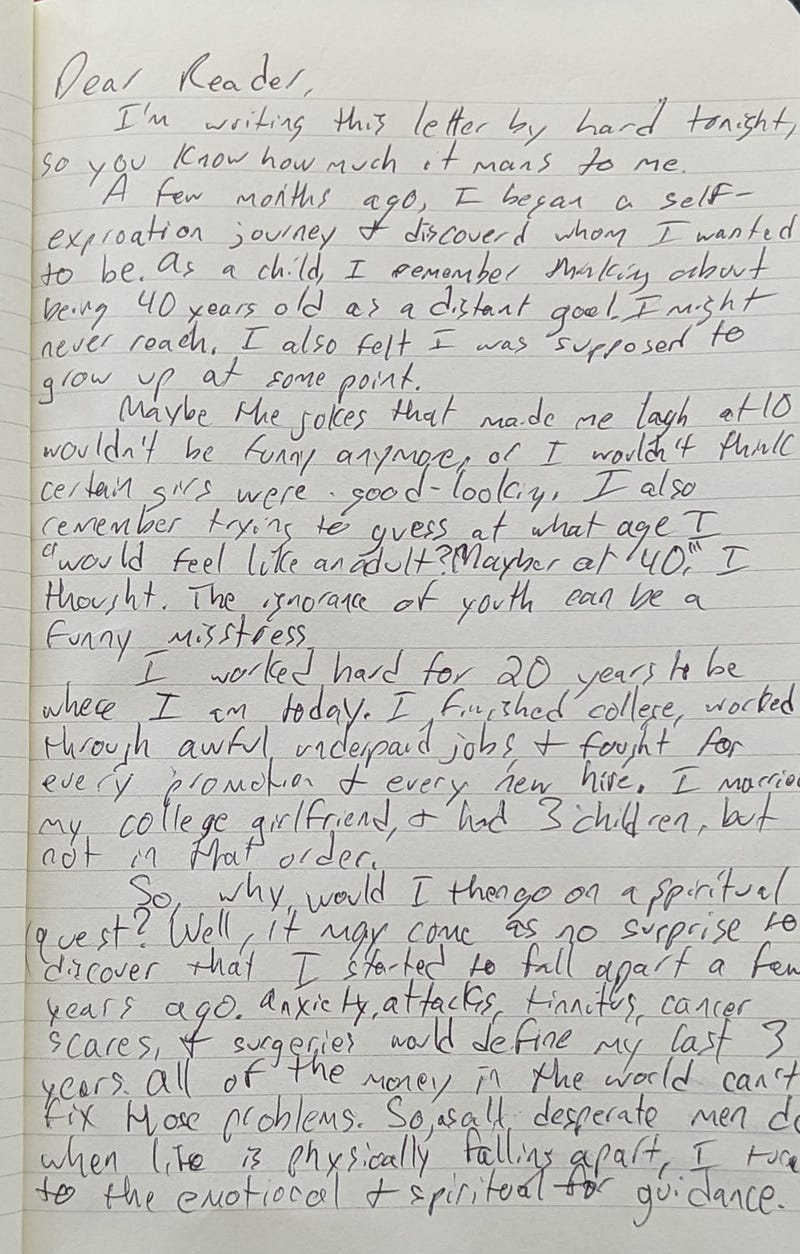 Dear Reader,
I'm writing this letter by hard tonight,
so you know how much it mans to me.
A few months ago, I began a self-
exproation journey & discoverd whom I wanted
to be. As a child, I remember thinking about
being 40 years old as a distant goal I might
never reach. I also felt I was supposed to
grow up at some point.
Maybe the jokes that made me lagh at 10
wouldn't be funny anymore, or I wouldn't think
certain girs were good-looking. I also
remember trying to guess at what age I
"would feel like an adult? Mayber at 40," I
thought. The ignorance of youth can be a
funny misstress
I worked hard for 20 years to be
where I am today. I finished college, worked
through awful underpaid jobs, & fought for
every promotion & every new hire. I marrie
my college girlfriend, & had 3 children, but
not in that order.
So, why would I then go on a spiritual
quest? Well, it may come as no surprise to
discover that I started to fall apart a few
years ago. Anxiety, attacks, tinnitus, cancer
scares, & surgeries would define my last 3
years. All of the money in the world can't
fix those problems. So, as all desperate men do
when life is physically falling apart, I
to the emotional & spiritual for guidance.